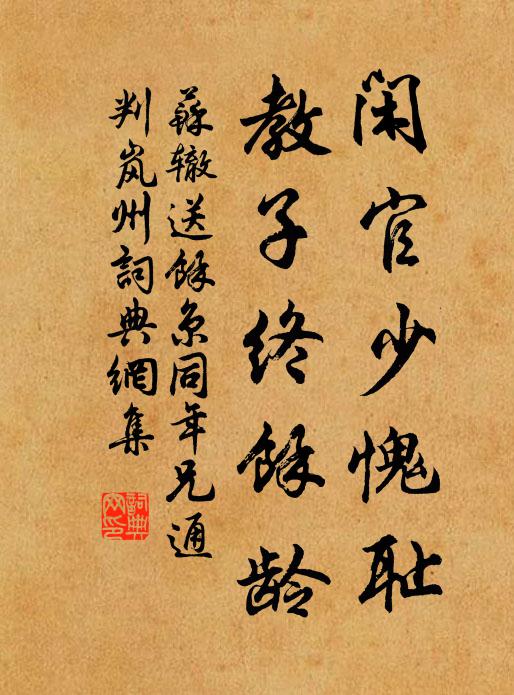 闲官少愧耻
教子终馀龄
苏辙送馀京同年兄通
判岚州词典網集
詞典
网印